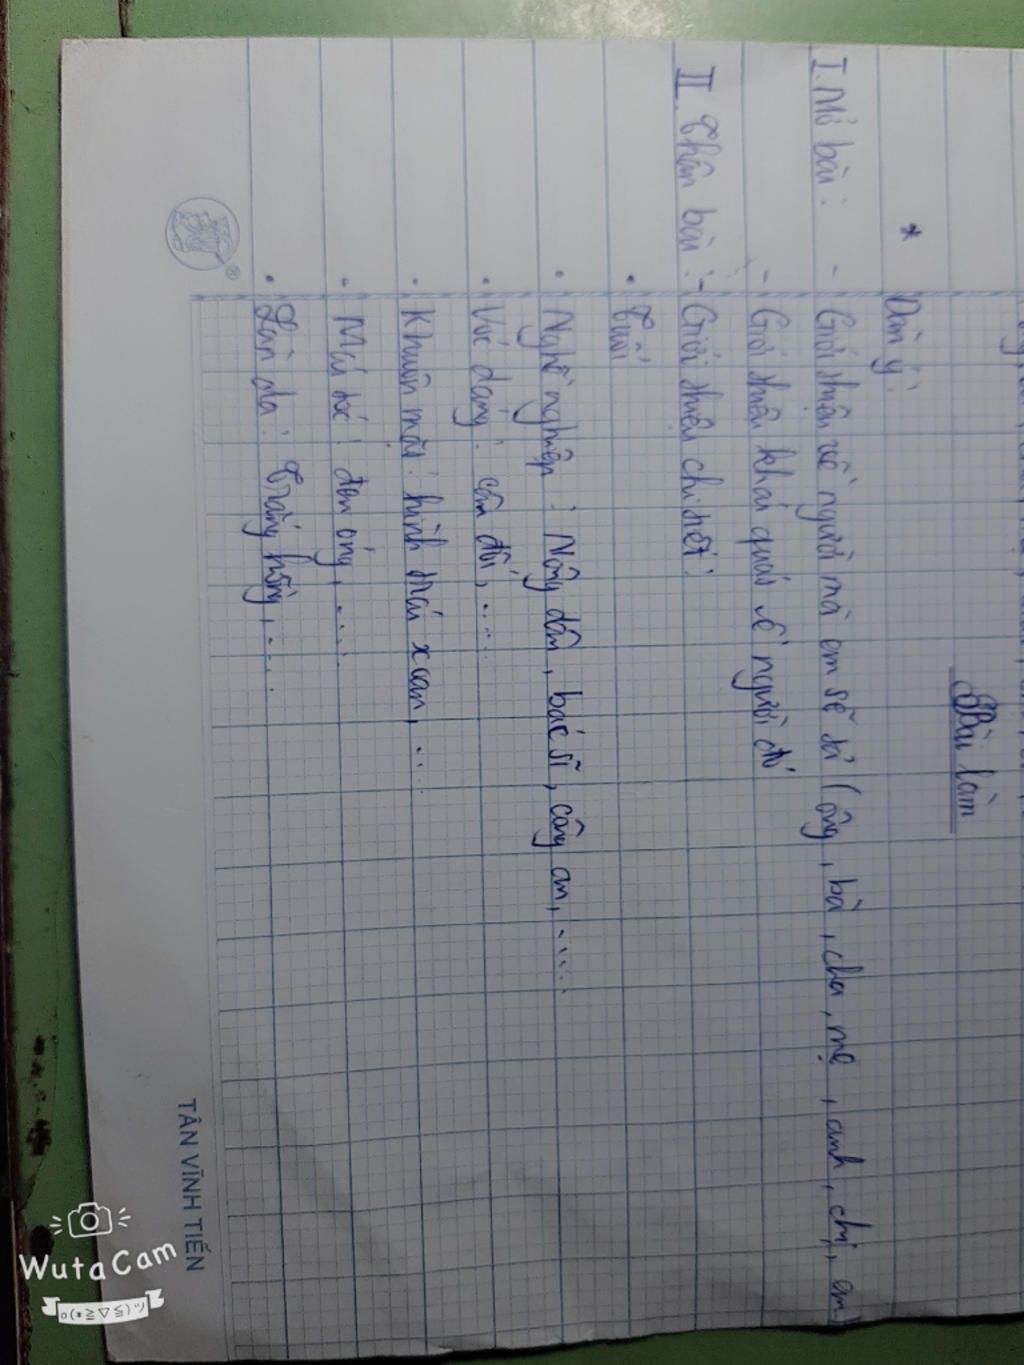 Bài làm
* Dàn ý:
I. Mở bài: - Giới thiệu về người mà em sẽ tả (ông, bà, cha, mẹ, anh, chị, em)
- Giới thiệu khái quát về người đó
II. Thân bài: - Giới thiệu chi tiết:
• Tuổi
• Nghề nghiệp: Nông dân, bác sĩ, công an,.....
• Vóc dáng: cân đối,....
• Khuôn mặt: hình trái xoan,...
• Mái tóc: đen óng,....
• Làn da: Trắng hồng,....
TÂN VĨNH TIẾN
WutaCam